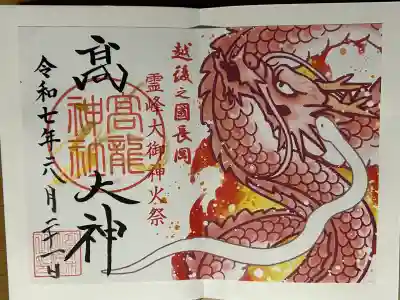 越後之國長岡
霊峰大御神火祭
髙大神
高龍神社
令和七年六月二十一日